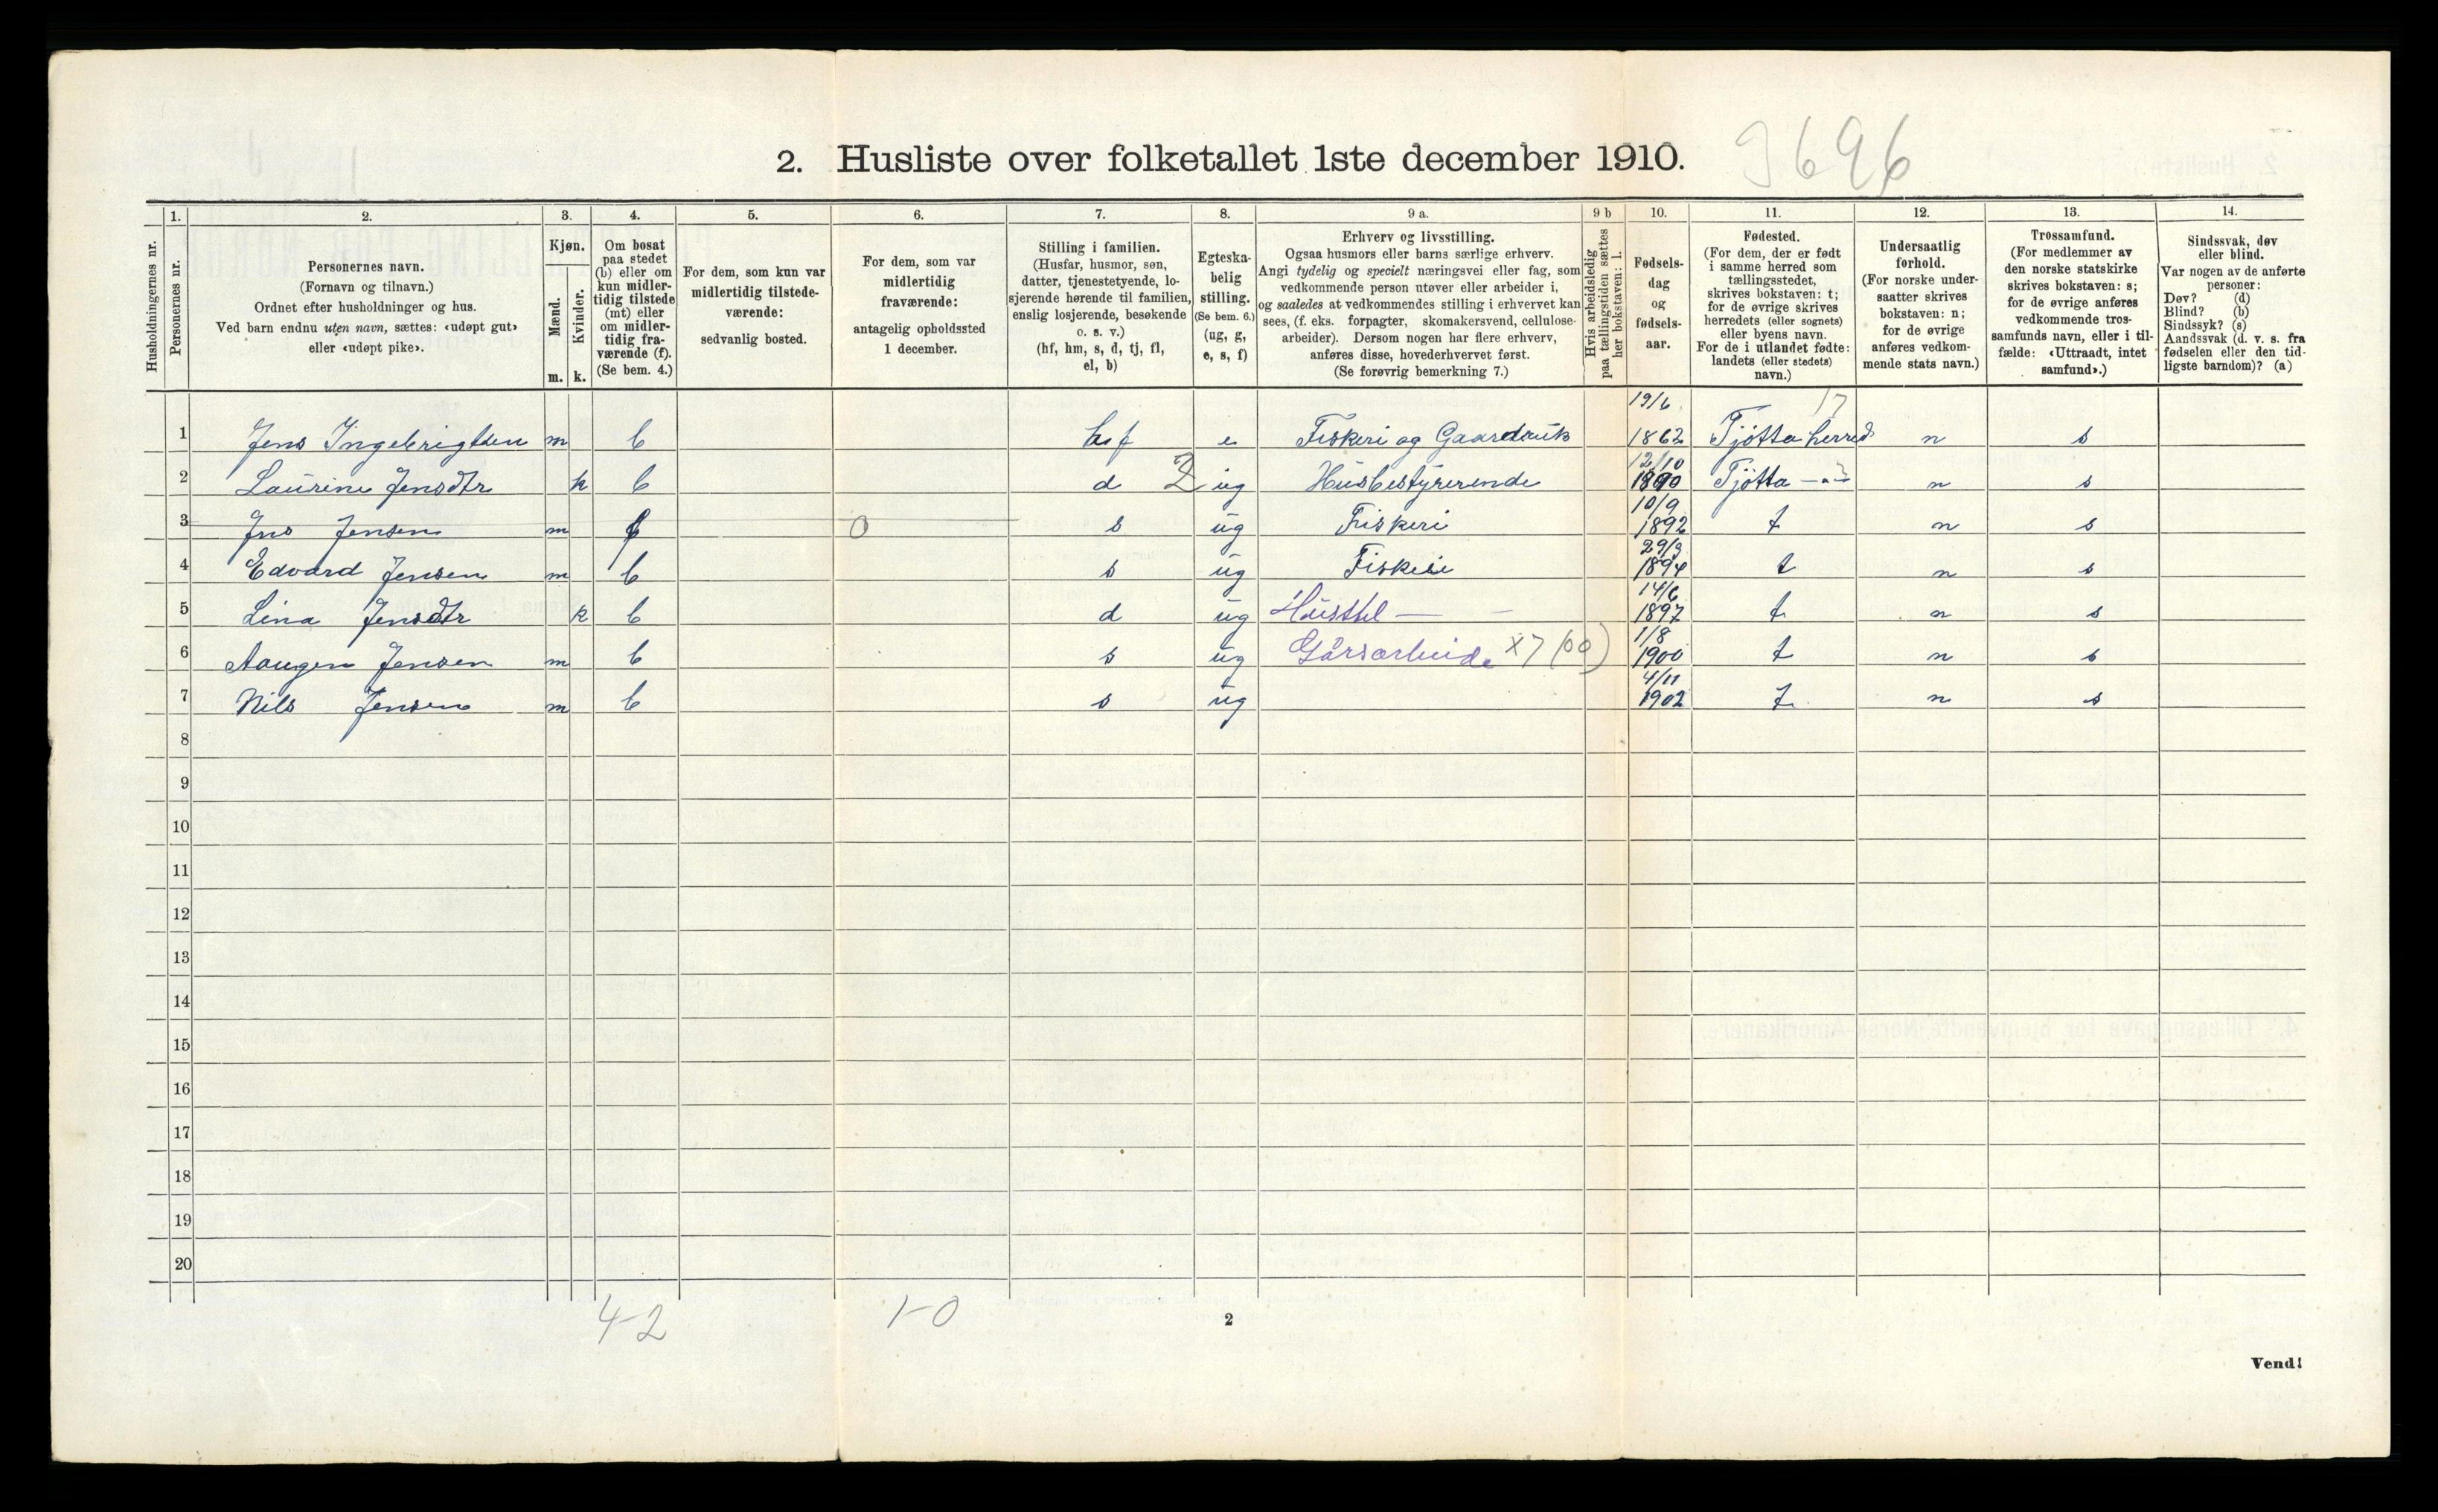 2. Husliste over folketallet 1ste december 1910. 3696
Husholdningernes nr.
1. Personernes nr.
2. Personernes navn.
(Fornavn og tilnavn.)
Ordnet efter husholdninger og hus.
Ved barn endnu uten navn, sættes: «udøpt gut»
eller «udøpt pike».
3. Kjøn.
Mænd. m.
Kvinder. k.
4. Om bosat
paa stedet
(b) eller om
kun midler-
tidig tilstede
(mt) eller
om midler-
tidig fra-
værende (f).
(Se bem. 4.)
5. For dem, som kun var
midlertidig tilstede-
værende:
sedvanlig bosted.
6. For dem, som var
midlertidig
fraværende:
antagelig opholdssted
1 december.
7. Stilling i familien.
(Husfar, husmor, søn,
datter, tjenestetyende, lo-
sjerende hørende til familien,
enslig losjerende, besøkende
o. s. v.)
(hf, hm, s, d, tj, fl,
el, b)
8. Egteska-
belig
stilling.
(Se bem. 6.)
(ug, g,
e, s, f)
9 a. Erhverv og livsstilling.
Ogsaa husmors eller barns særlige erhverv.
Angi tydelig og specielt næringsvei eller fag, som
vedkommende person utøver eller arbeider i,
og saaledes at vedkommendes stilling i erhvervet kan
sees, (f. eks. forpagter, skomakersvend, cellulose-
arbeider). Dersom nogen har flere erhverv,
anføres disse, hovederhvervet først.
(Se forøvrig bemerkning 7.)
9 b Hvis arbeidsledig
paa tællingstiden sættes
her bokstaven: l.
10. Fødsels-
dag
og
fødsels-
aar.
11. Fødested.
(For dem, der er født
i samme herred som
tællingsstedet,
skrives bokstaven: t;
for de øvrige skrives
herredets (eller sognets)
eller byens navn.
For de i utlandet fødte:
landets (eller stedets)
navn.)
12. Undersaatlig
forhold.
(For norske under-
saatter skrives
bokstaven: n;
for de øvrige
anføres vedkom-
mende stats navn.)
13. Trossamfund.
(For medlemmer av
den norske statskirke
skrives bokstaven: s;
for de øvrige anføres
vedkommende tros-
samfunds navn, eller i til-
fælde: «Uttraadt, intet
samfund».)
14. Sindssvak, døv
eller blind.
Var nogen av de anførte
personer:
Døv? (d)
Blind? (b)
Sindssyk? (s)
Aandssvak (d. v. s. fra
fødselen eller den tid-
ligste barndom)? (a)
1 Jens Ingebrigtsen m b hf e Fiskeri og Gaardbruk 19/6 1862 Tjøtta herred n s
2 Laurine Jensdtr k b d ug Husbestyrerende 12/10 1890 Tjøtta —"— n s
3 Jens Jensen m 0 s ug Fiskeri 10/9 1892 t n s
4 Edvard Jensen m b s ug Fiskeri 29/3 1894 t n s
5 Lina Jensdtr k b d ug Husstel — — 14/6 1897 t n s
6 Aaugen Jensen m b s ug Gårsarbeide x7 (00) 1/8 1900 t n s
7 Nils Jensen m b s ug 4/11 1902 t n s
8
9
10
11
12
13
14
15
16
17
18
19
20
4-2 1-0 2
Vend!